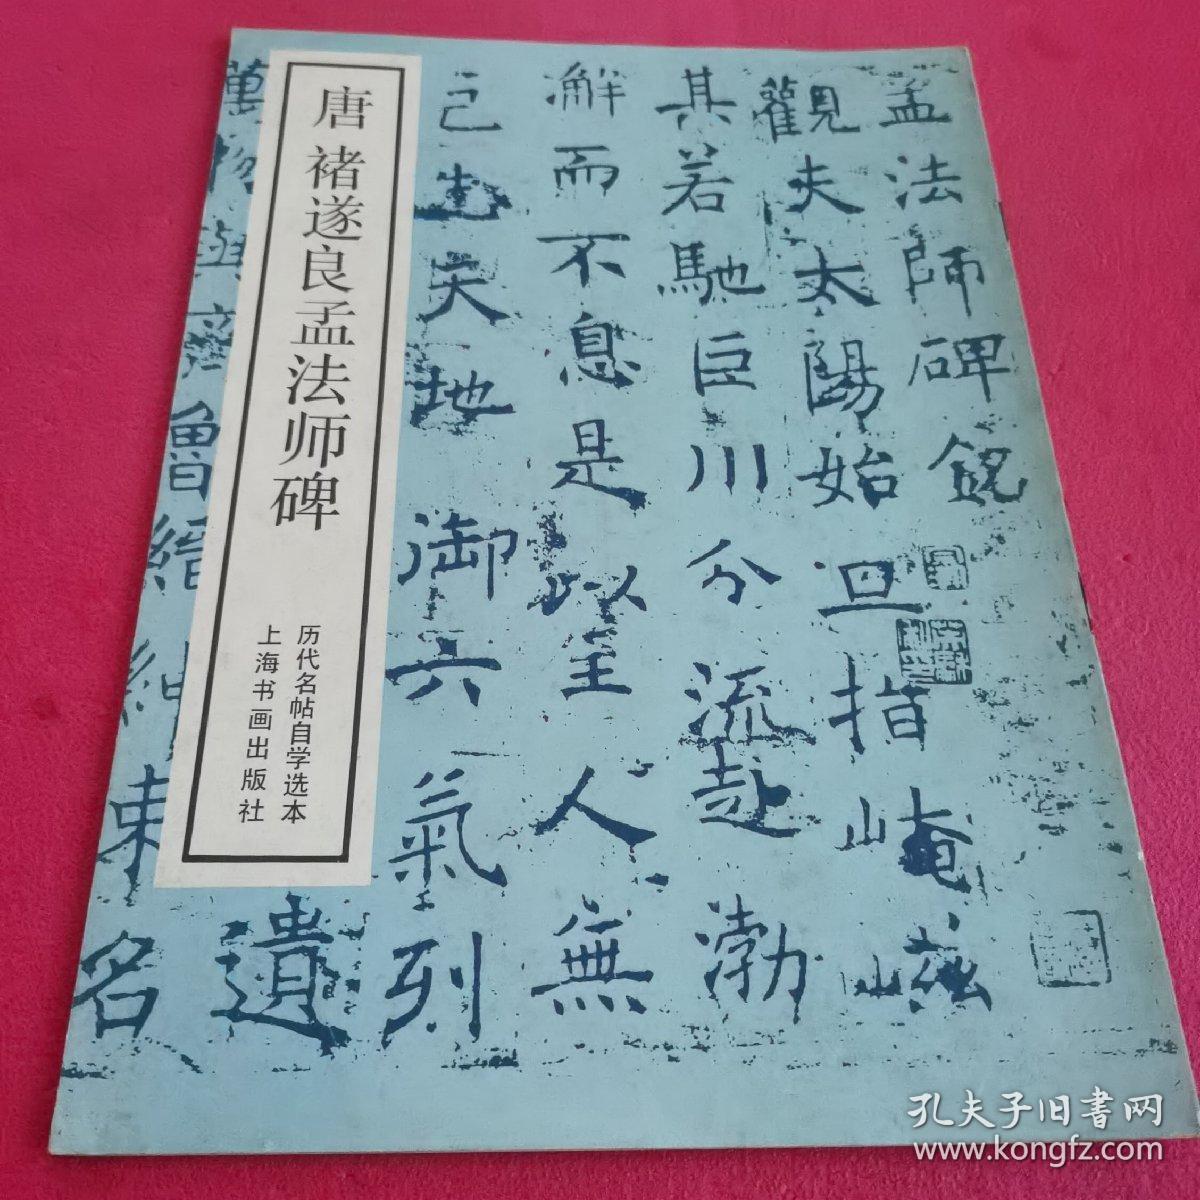 孟法師碑銘
觀夫太陽始旦指崦嵫
其若馳巨川分流赴渤
澥而不息是以至人無
己生天地御六氣列
萬物與齊魯縉紳束名
遺
唐 褚遂良孟法师碑
历代名帖自学选本
上海书画出版社
孔夫子旧书网
www.kongfz.com